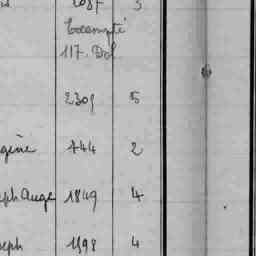 5
Exempté
117. Dol
2301 5
gène 744 2
eph Ange 1849 4
seph 1398 4